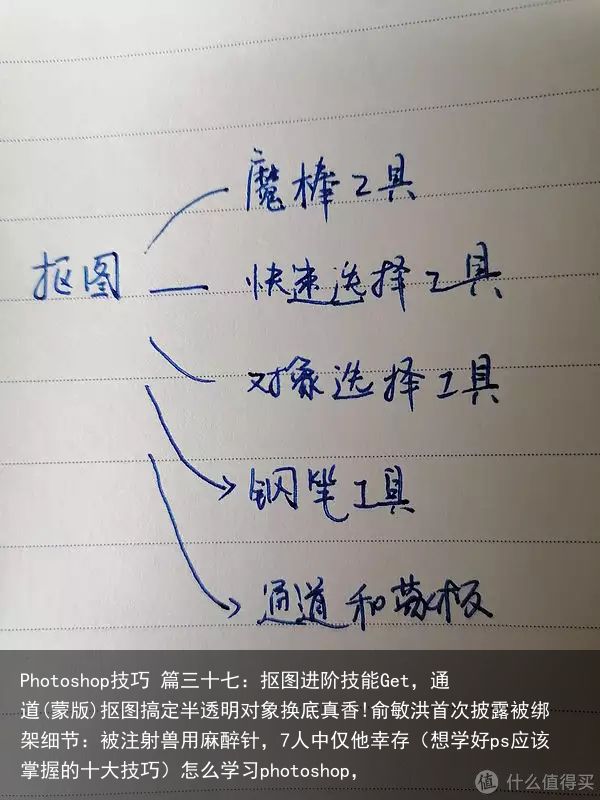 魔棒工具
抠图
快速选择工具
对象选择工具
钢笔工具
通道和蒙板
Photoshop技巧 篇三十七：抠图进阶技能Get，通
道(蒙版)抠图搞定半透明对象换底真香!俞敏洪首次披露被绑
架细节：被注射兽用麻醉针，7人中仅他幸存（想学好ps应该
掌握的十大技巧）怎么学习photoshop,
值 什么值得买